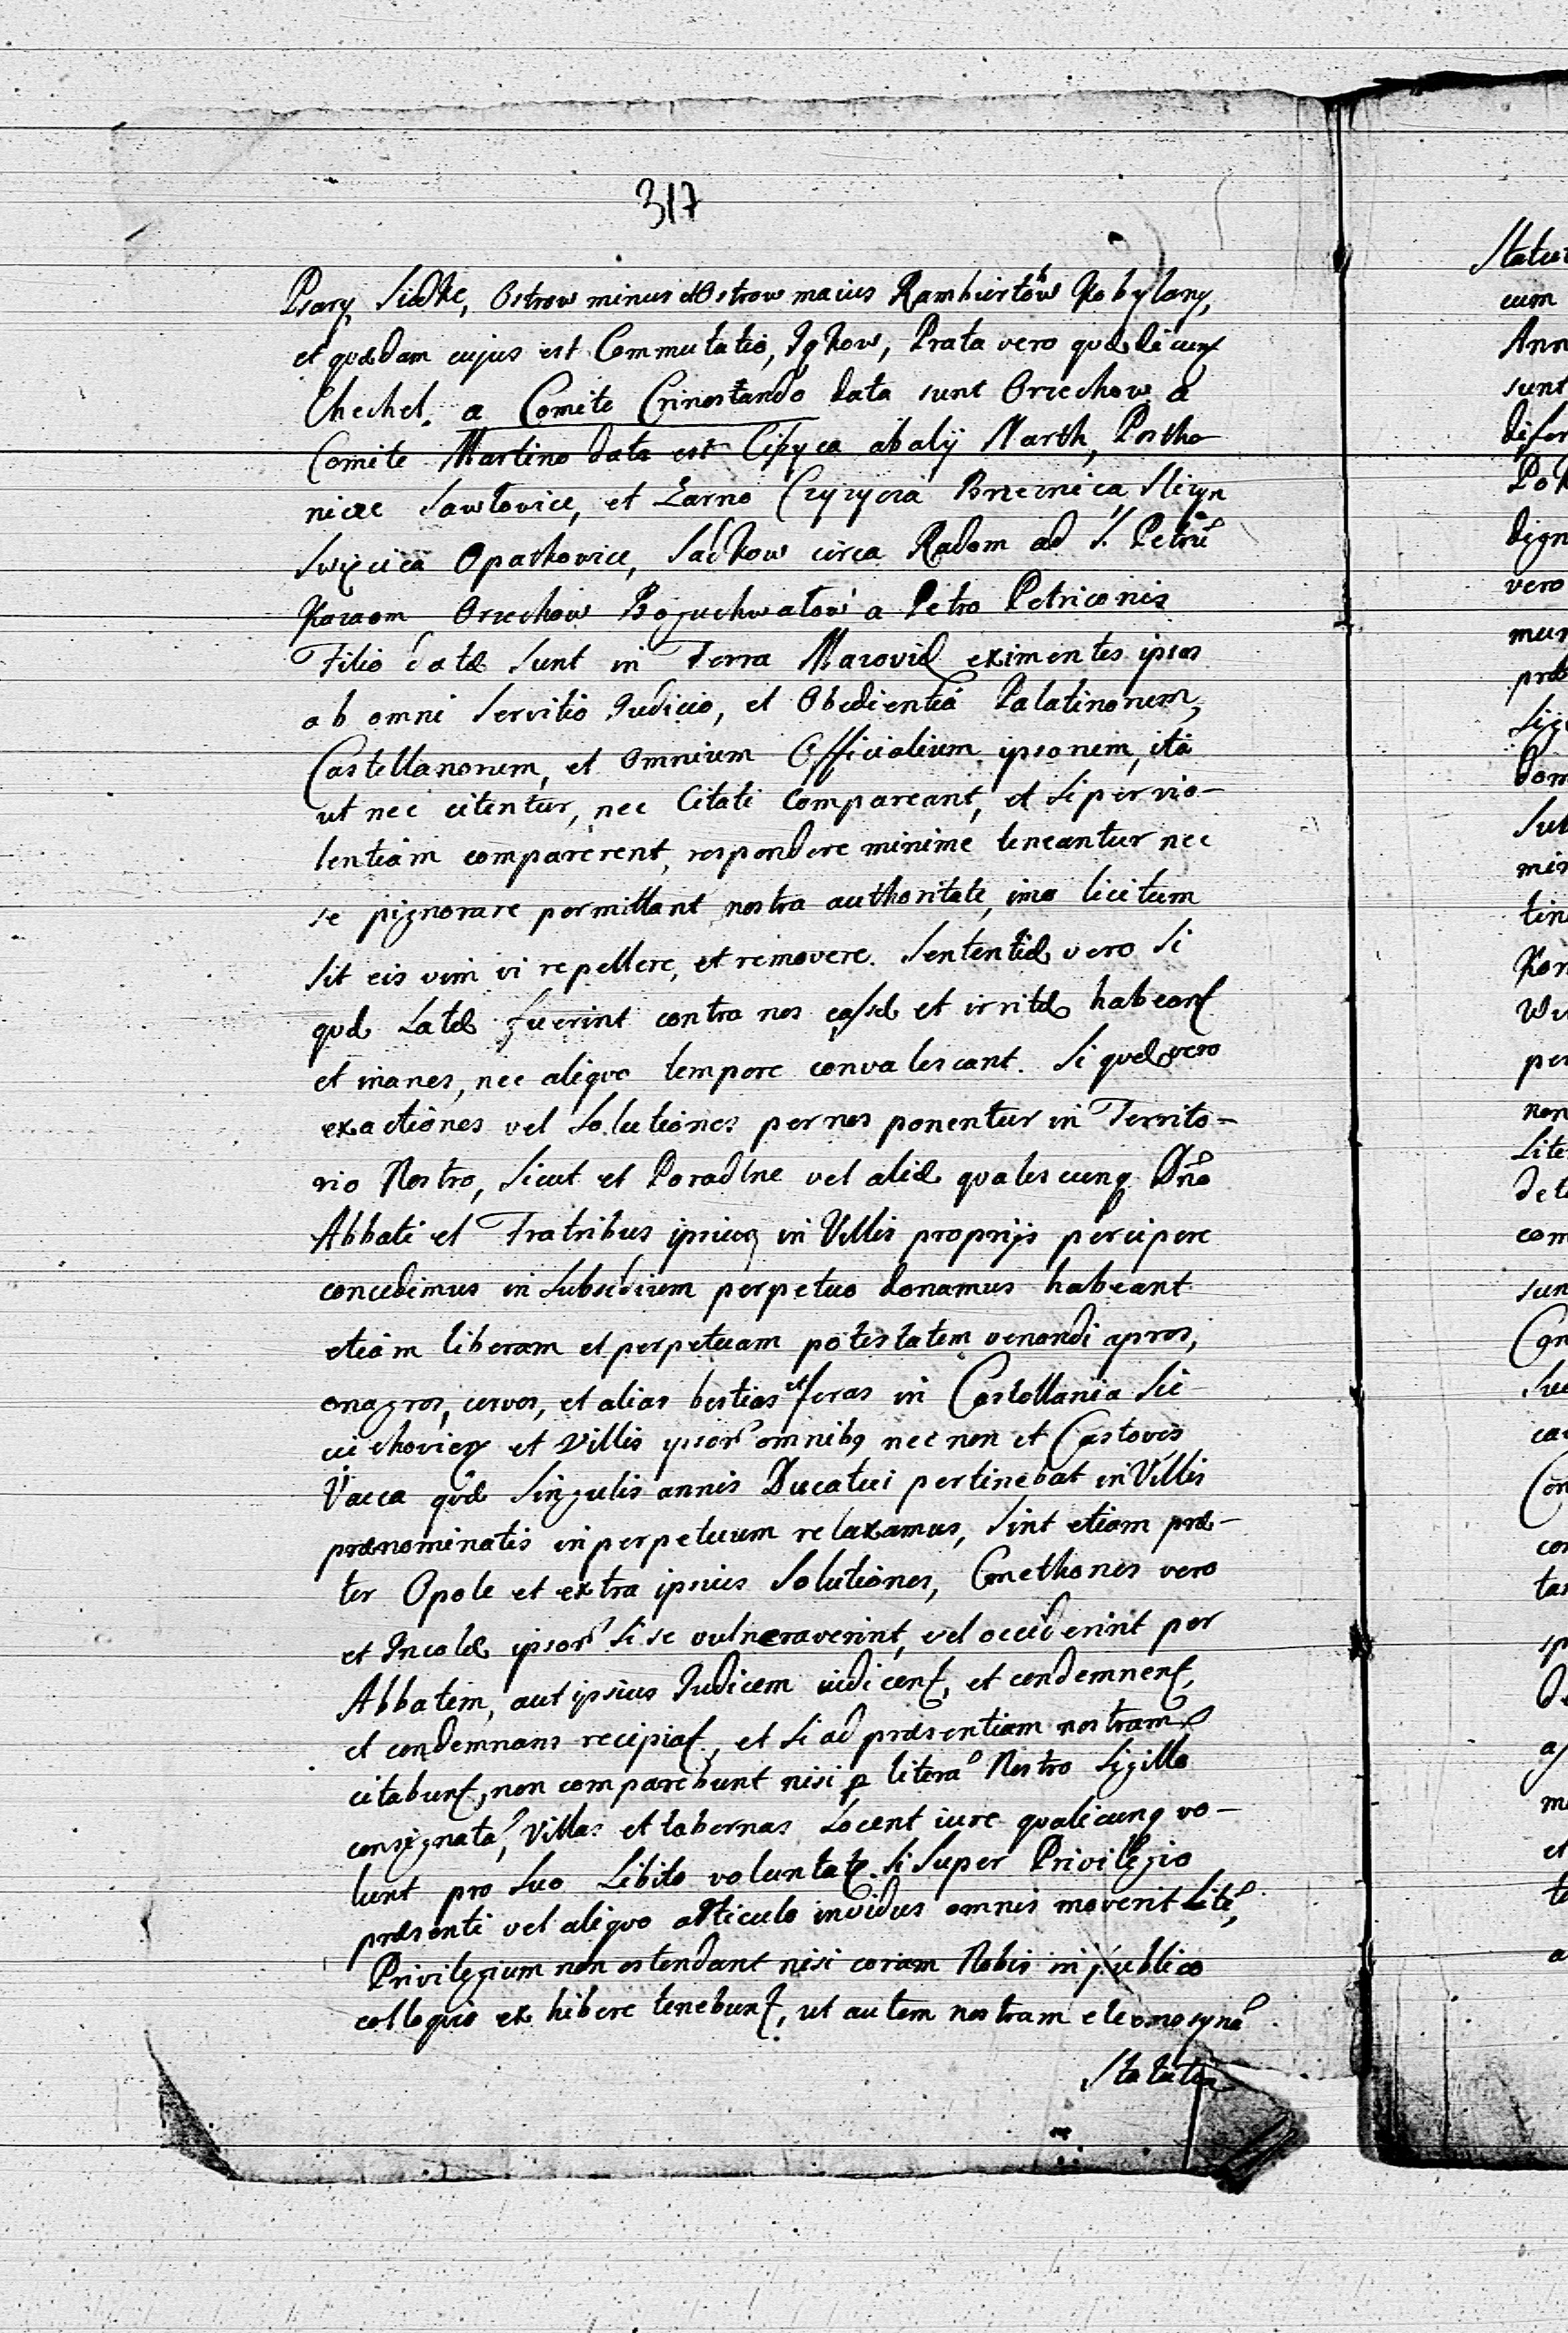 317
Psary, Siadke, Ostrow minus et Ostrow maius Ramhurtow Kobylany,
et quædam cujus est Commutatio, Igkow, Prata vero quæ dicunt
Chechel. a Comite Crinostando data sunt Orzechow a
Comite Martino data est Cissyca abalij Marth, Postho
nicze Sawlovice, et Zarno Czyzycia Brzeznica, Slizyn
Swięcica Opatkovice, Sadkow circa Radom ad S. Petrũ
Kazaom Orzechow Boguchwałow a Petro Petriconis
Filio datæ Sunt in Terra Mazoviæ eximentes ipsos
ab omni Servitio Judicio, et Obedientiâ Palatinorum,
Castellanorum, et Omnium Officialium ipsorum, ita
ut nec citentur, nec Citati Compareant, et Si per vio-
lentiam comparerent, respondere minime teneantur nec
se pignorare permittant nostra authoritate, imo licitum
Sit eis vim vi repellere, et removere. Sententiæ vero Si
quæ Latæ fuerint contra nos cassæ et irritæ habeant
et inanes, nec aliquo tempore convalescant. Si quæ vero
exactiones vel Solutiones per nos ponentur in Territo-
rio Nostro, Sicut et Poradlne vel aliæ qualescunq Dño
Abbati et Fratribus ipsius in Villis proprijs percipere
concedimus in Subsidium perpetuo donamus habeant
etiam liberam et perpetuam potestatem venandi apros,
onagros, cervos, et alias bestias et feras in Castellania Sie-
ciechoviex et Villis ipsor omnibq nec non et Castoves
Vacca quæ Singulis annis Ducatui pertinebat in Villis
prænominatis in perpetuum relaxamus, Sint etiam præ-
ter Opole et extra ipsius Solutiones, Cmethones vero
et Incolæ ipsor Si se vulneraverint, vel occiderint per
Abbatem, aut ipsius Judicem iudicent, et condemnent,
et condemnans recipiat, et Si ad præsentiam nostram
citabunt, non comparebunt nisi p litera Nostro Sigillo
consignata, Villas et tabernas Locent iure qualicunq vo-
lunt pro Suo Libito voluntate. Si Super Privilegio
præsenti vel aliquo articulo invidus omnis moverit Lite,
Privilegium non ostendant nisi coram Nobis in publico
colloquio exhibere tenebunt, ut autem nostram eleemosyna
Statuta
Statut
cum
Ann
sunt
difer
Pok
dign
vero
mun
præ
Sig
dom
Sub
min
tin
Kon
Wi
per
non
Lite
det
com
sun
Con
Su
ca
Con
con
tan
sp
De
a
m
et
t
a